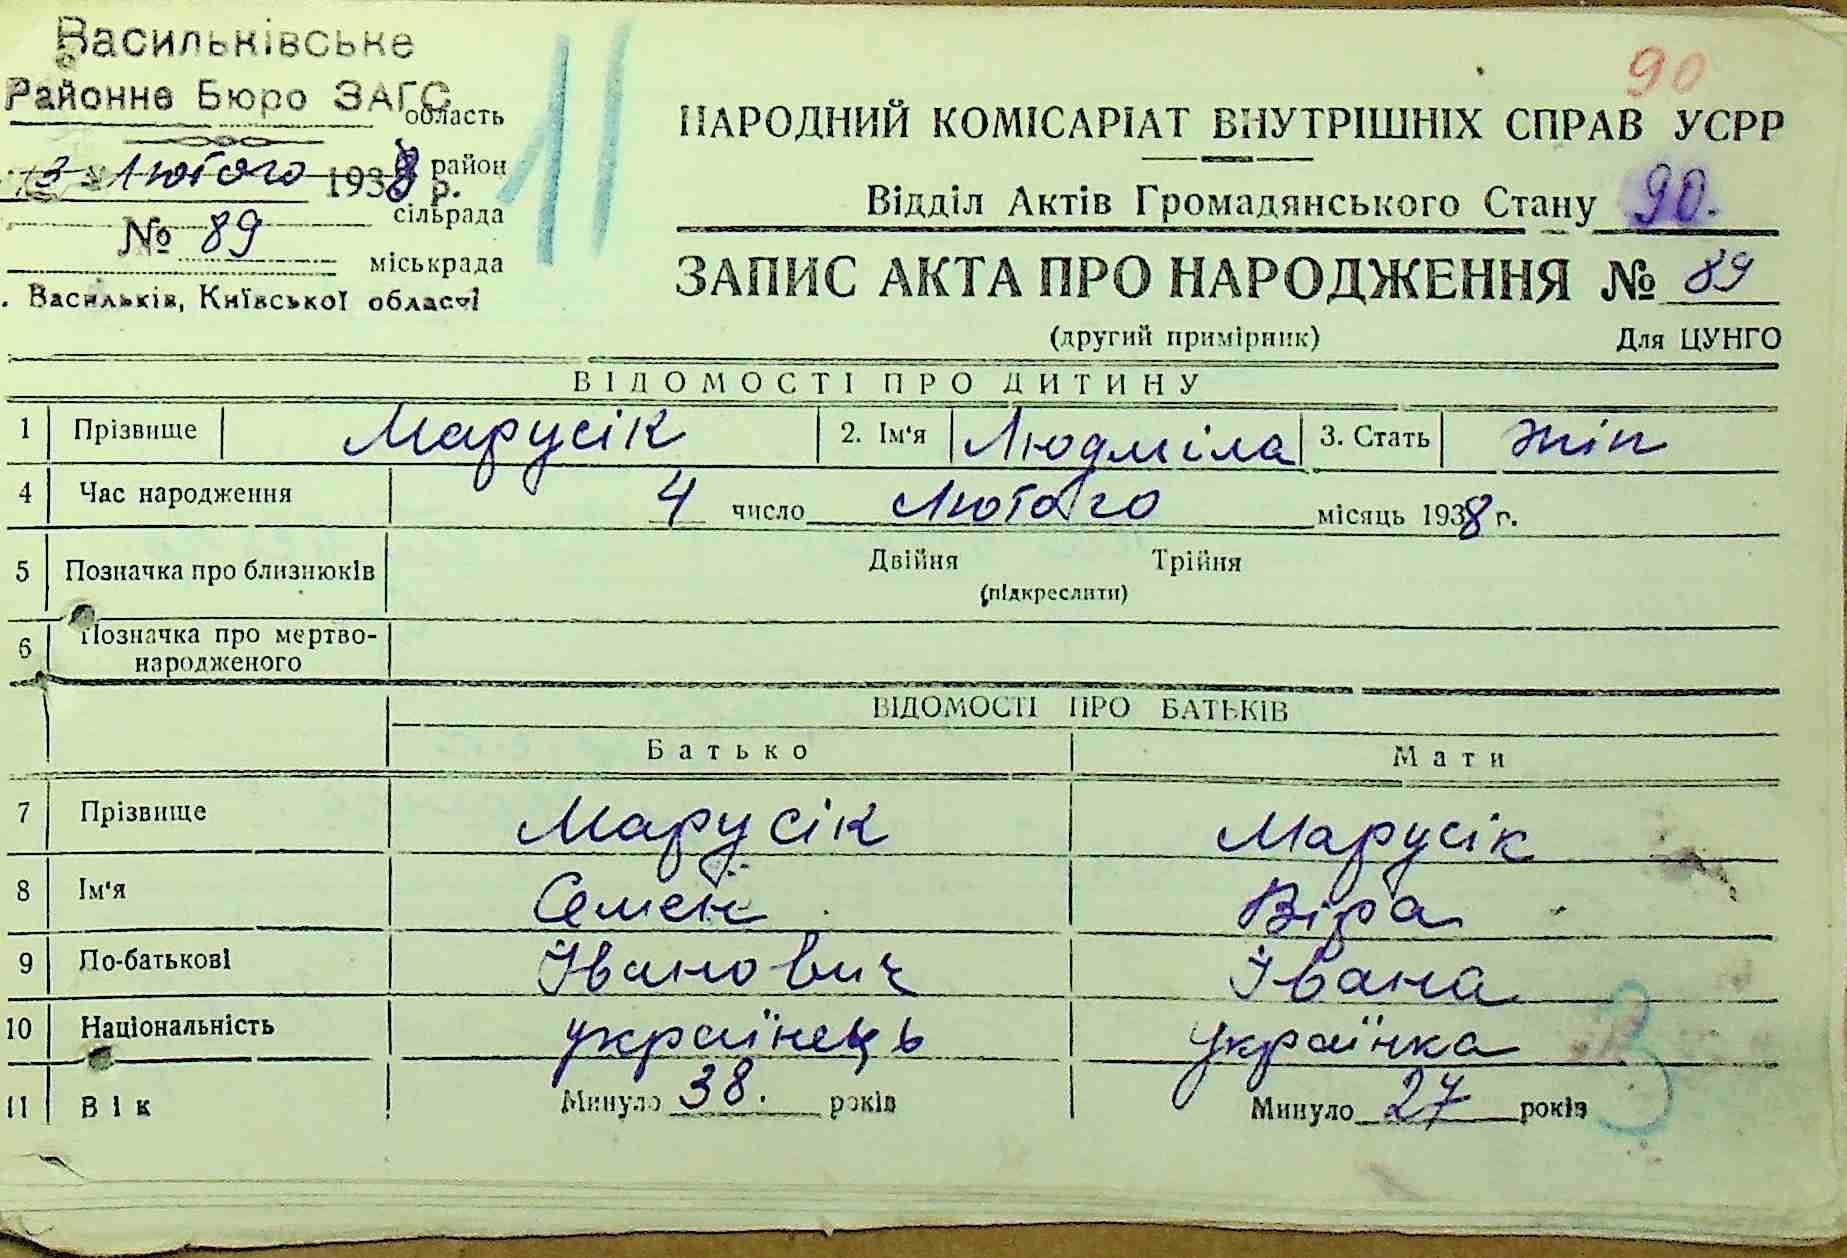 Васильківське
Районне Бюро ЗАГС
область
13 Лютого 1938 р.
район
сільрада
№ 89
міськрада
. Васильків, Київської області
11
90
НАРОДНИЙ КОМІСАРІАТ ВНУТРІШНІХ СПРАВ УСРР
Відділ Актів Громадянського Стану 90.
ЗАПИС АКТА ПРО НАРОДЖЕННЯ № 89
(другий примірник) Для ЦУНГО
ВІДОМОСТІ ПРО ДИТИНУ
1 Прізвище Марусік 2. Ім'я Людміла 3. Стать жін
4 Час народження 4 число Лютого місяць 1938 г.
5 Позначка про близнюків Двійня Трійня
(підкреслити)
6 Позначка про мертво-
народженого
ВІДОМОСТІ ПРО БАТЬКІВ
Батько Мати
7 Прізвище Марусік Марусік
8 Ім'я Семен Віра
9 По-батькові Іванович Івана
10 Національність українець українка
3
11 Вік Минуло 38. років Минуло 27 років